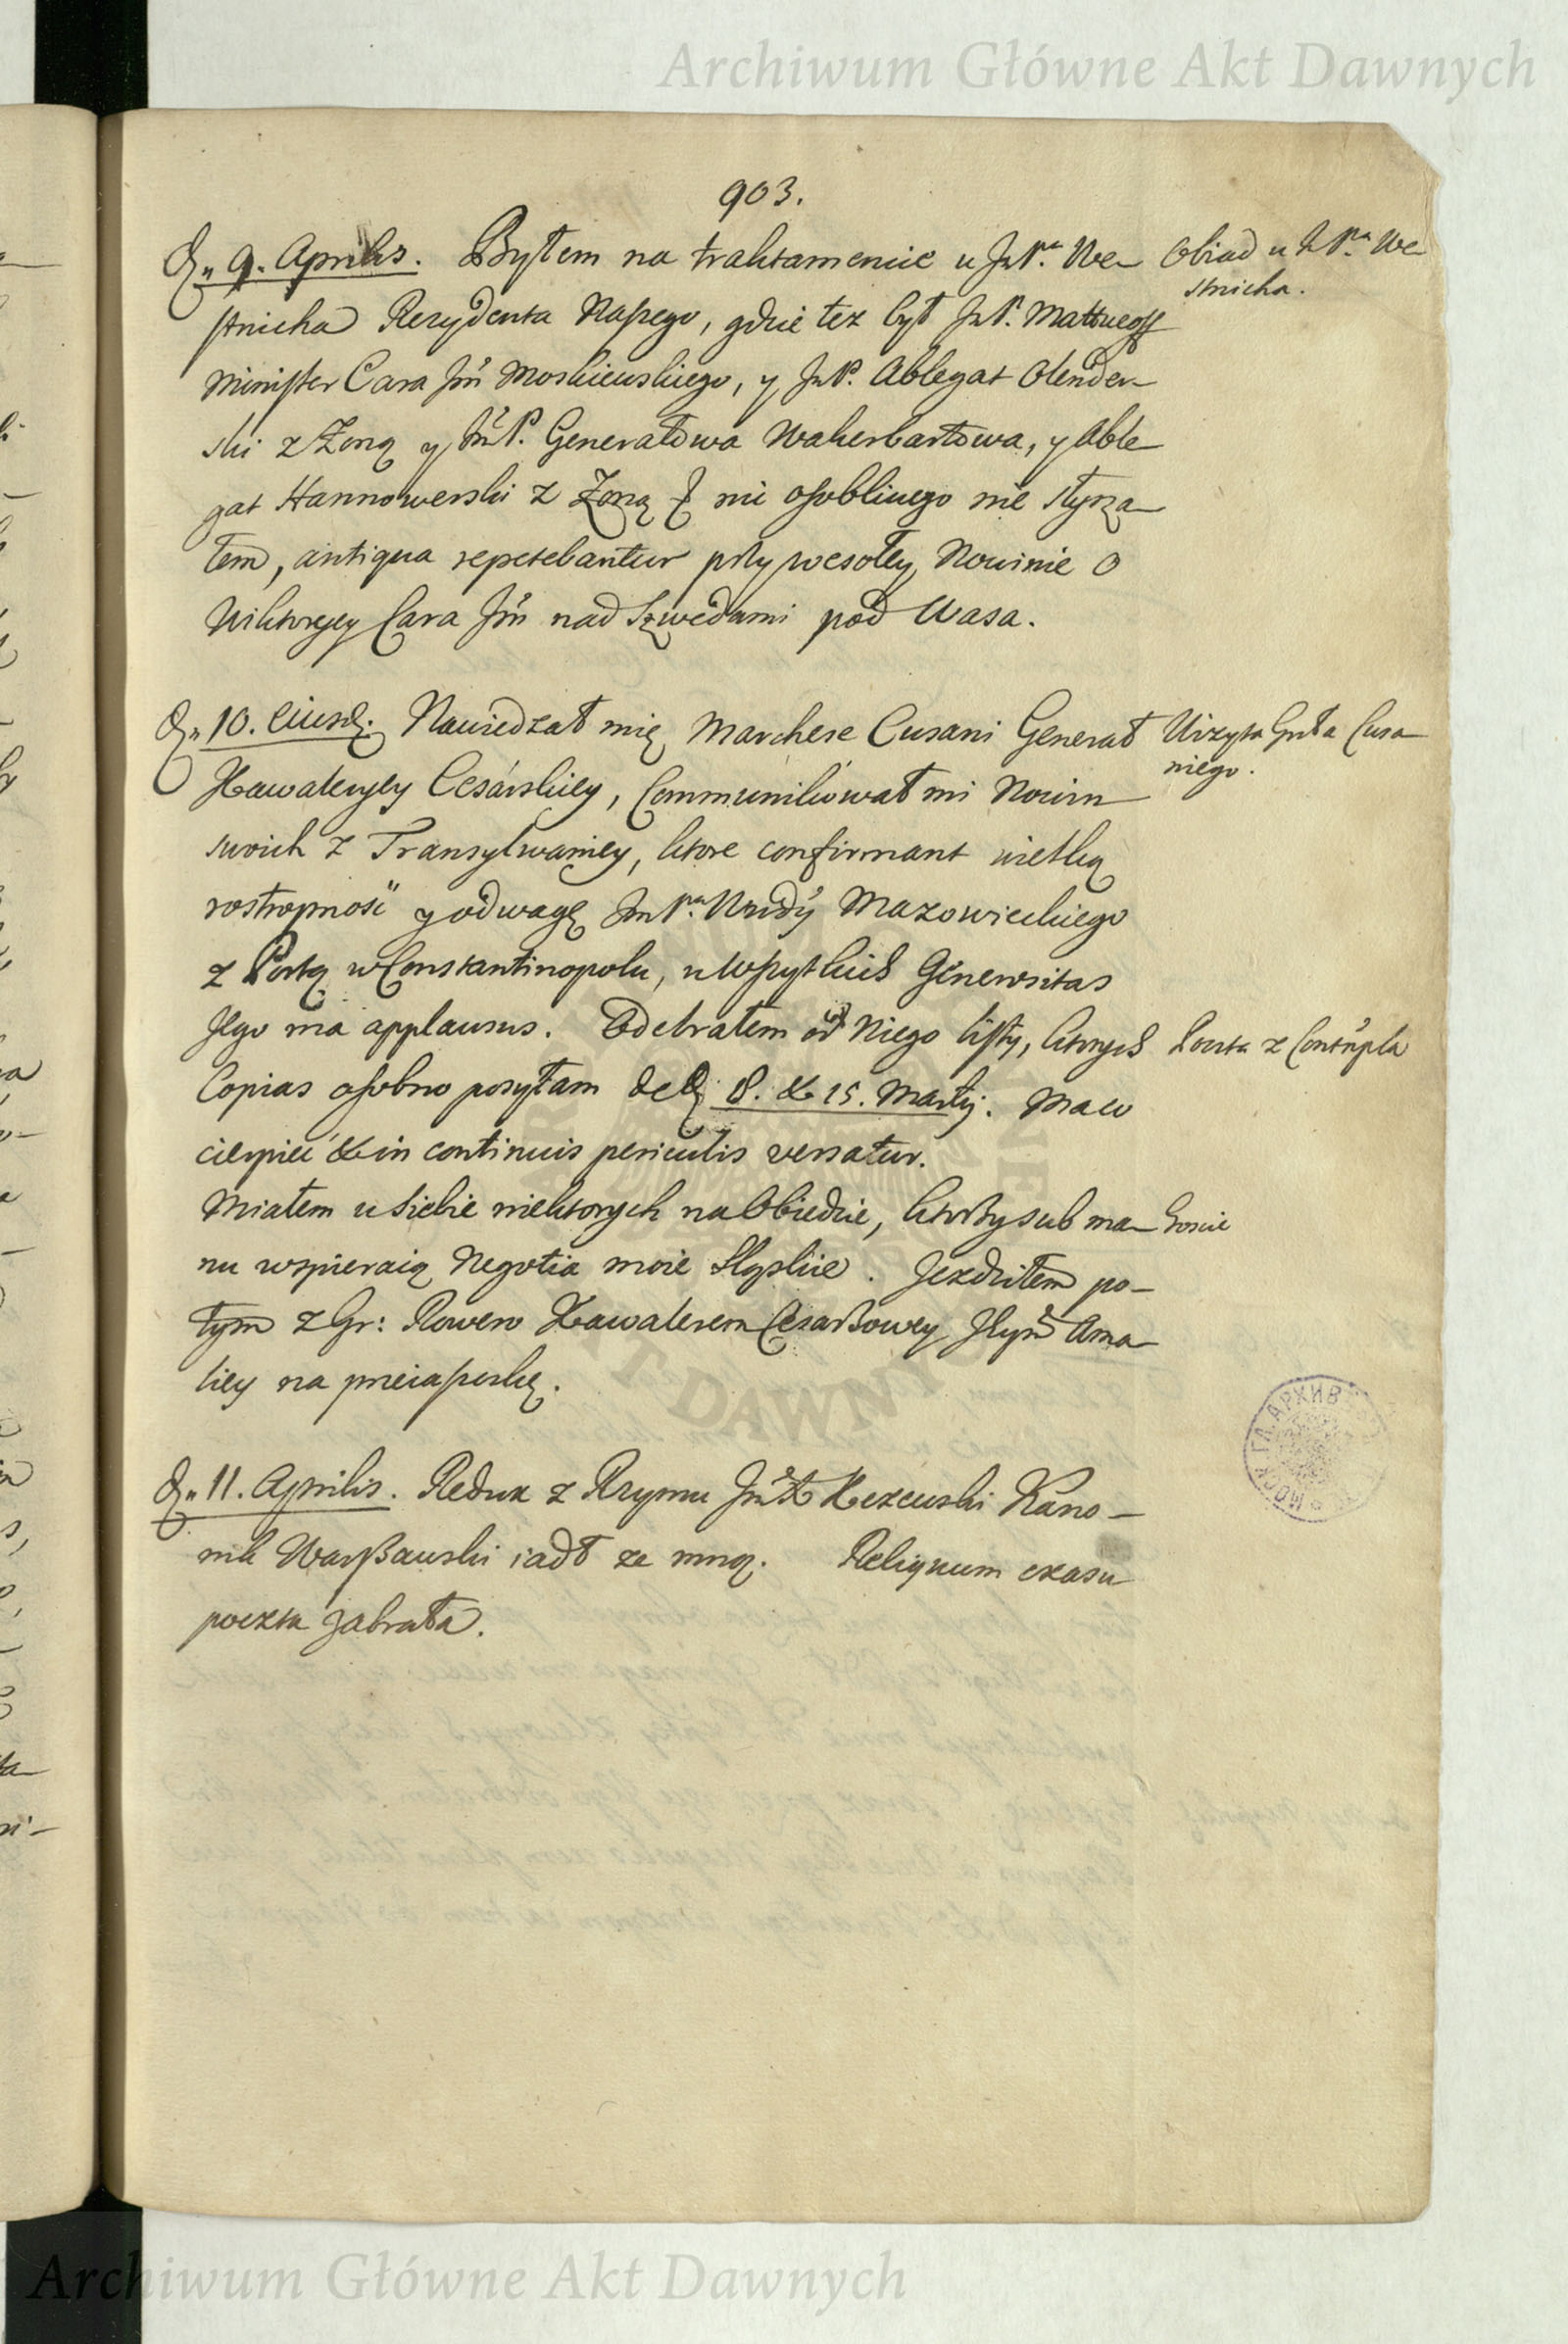 Archiwum Główne Akt Dawnych
903.
D. 9. Aprilis. Byłem na traktamencie u JmP.na We-
stnicha Rezydenta Naszego, gdzie tez był JmP. Mattueoff
Minister Cara Jm Moskiewskiego, y JmP. Ablegat Olender-
ski z Zoną y JmP. Generałowa Wakerbartowa, y Able
gat Hannowerski z Zoną nic osobliwego nie słysza-
łem, antiqua repetebantur przy wesołey Nowinie o
Wiktoryey Cara Jm nad Szwedami pod Wasa.
Obiad u J P.na We
stnicha.
D. 10. Eiusd. Nawiedzał mię Marchese Cusani Generał
Kawaleryey Cesárskiey, Communikował mi Nowin
swoich z Transylwaniey, ktore confirmant wielką
rostropność y odwagę JmP.na Wdy Mazowieckiego
z Portą w Constantinopolu, u Wszytkich Generositas
Jego ma applausus. Odebrałem od Niego listy, ktorych
Copias osobno posyłam de D. 8. & 15. Martij. Ma co
cierpieć & in continuis periculis versatur.
Miałem u siebie niektorych na Obiedzie, ktorzy sub ma-
nu wspieraią Negotia moie Sląskie. Jezdziłem po-
tym z Gr: Rowero Kawalerem Cesarzowey Jeym Ama-
liey na przeiaszkę.
Wizyta Gnła Cusa
niego.
Poczta z Contnpla
Goscie
D. 11. Aprilis. Redux z Rzymu Jm X Kezewski Kano-
nik Warszawski iadł ze mną. Reliquum czasu
poczta zabrała.
Archiwum Główne Akt Dawnych